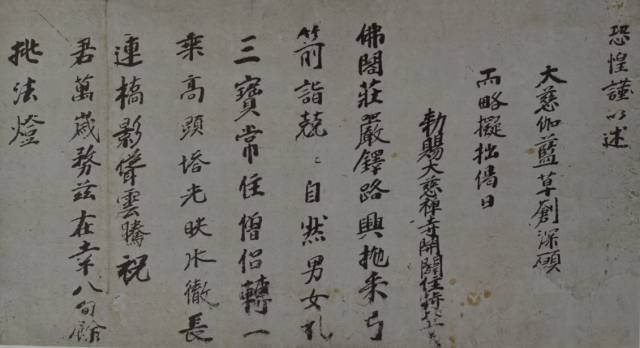 恐惶謹以述
大慈伽藍草創深願
而略擬拙偈曰
勅賜大慈禪寺開闢住持
佛閣莊嚴鐸路興拋来弓
箭詣兢〻自然男女礼
三寶常住僧侶轉一
乘高顕塔光映水徹長
連橋影聳雲騰祝
君萬歳務茲在八旬餘
挑法燈